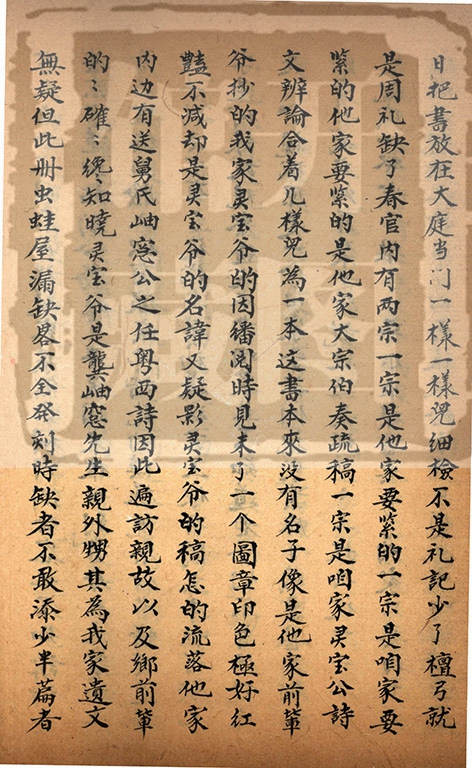 日把書放在大庭当门一樣一樣児细檢不是礼記少了檀弓就
是周礼缺了春官内有两宗一宗是他家要紧的一宗是咱家要
紧的他家要紧的是他家大宗伯奏疏稿一宗是咱家灵宝公詩
文辨論合着几樣児為一本这書本來没有名子像是他家前軰
爷抄的我家灵宝爷的因繙阅時見末了一个圖章印色極好红
豔不减却是灵宝爷的名諱又疑影灵宝爷的稿怎的流落他家
内边有送舅氏岫窓公之任粤西詩因此遍訪親故以及鄉前軰
的的確確纔知曉灵宝爷是龔岫窓先生親外甥其為我家遺文
無疑但此册虫蛀屋漏缺畧不全發刻時缺者不敢添少半篇者